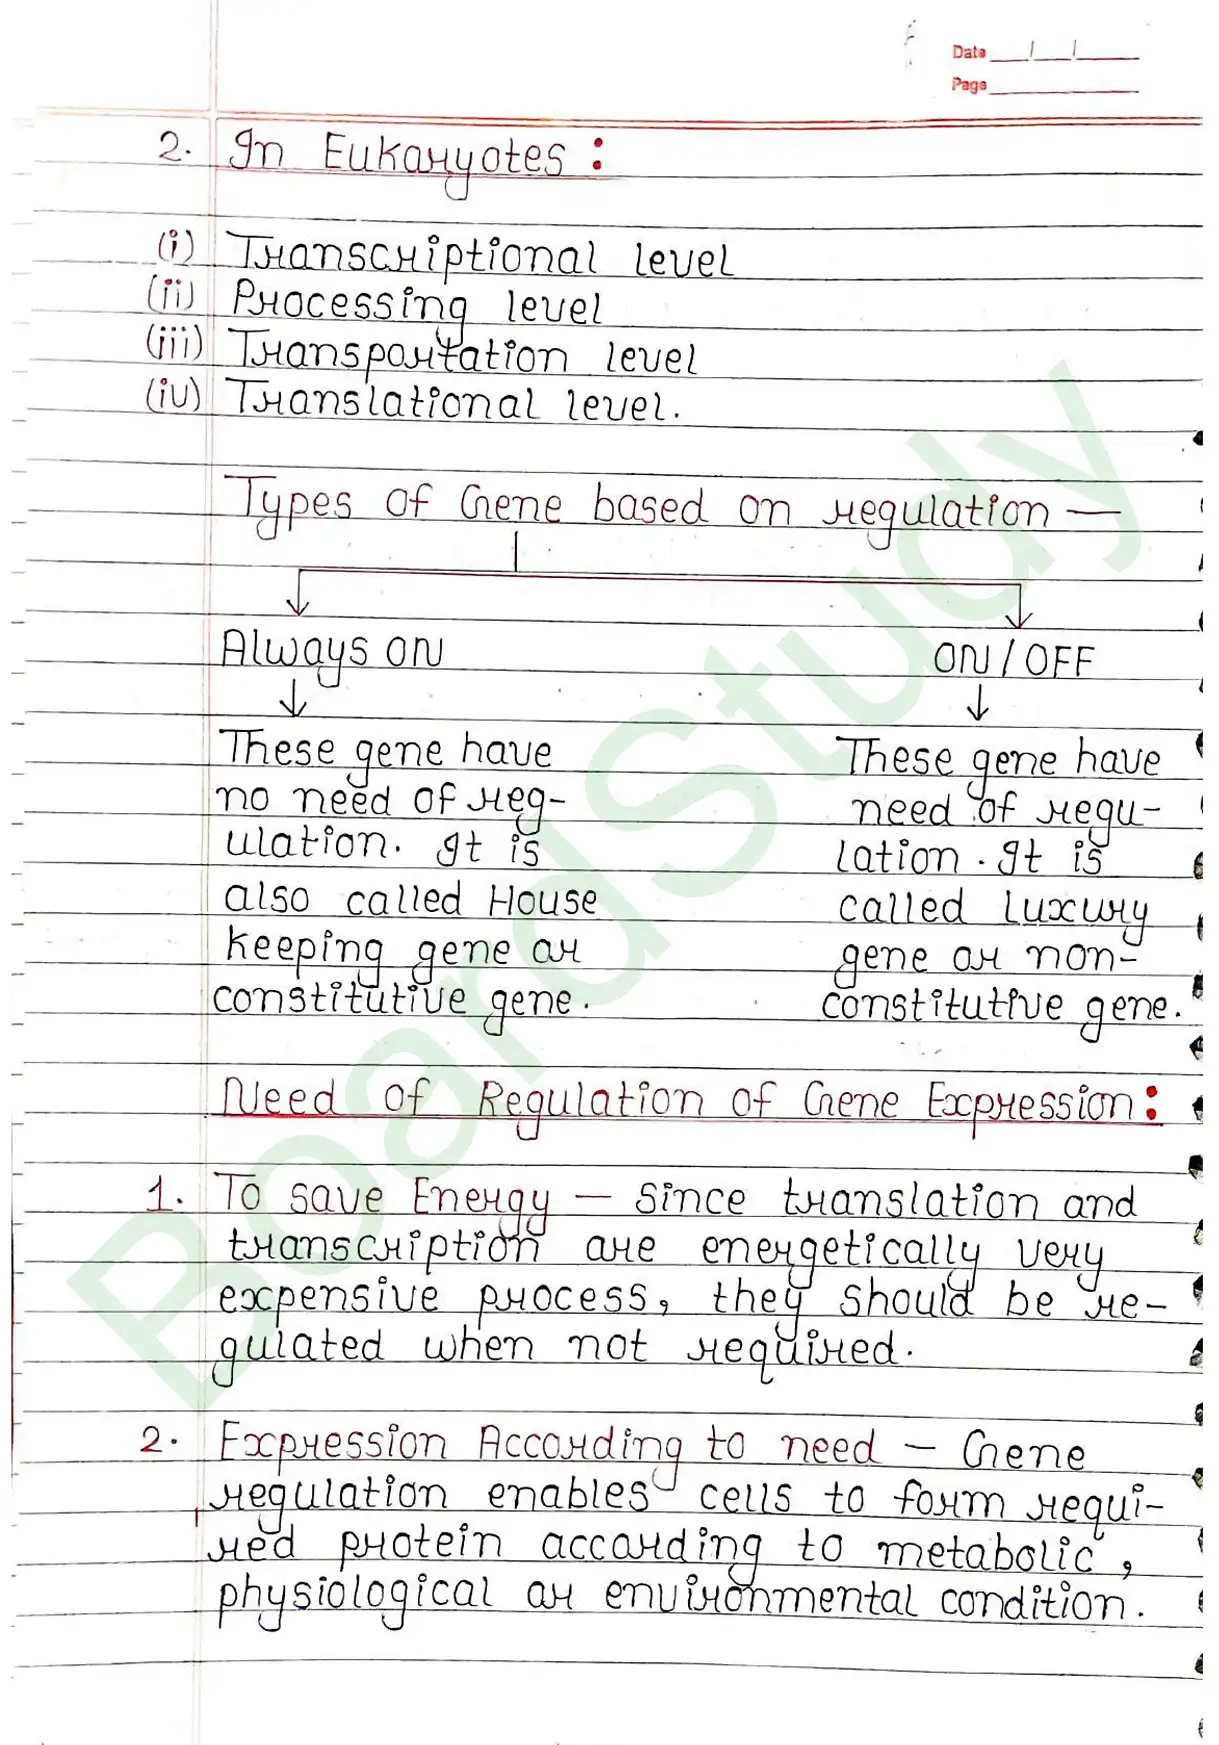 Date __/__/____
Page
2. In Eukaryotes :
(i) Transcriptional level
(ii) Processing level
(iii) Transportation level
(iv) Translational level.
Types of Gene based on regulation —
Always ON
ON / OFF
These gene have
no need of reg-
ulation. It is
also called House
keeping gene or
constitutive gene.
These gene have
need of regu-
lation. It is
called Luxury
gene or non-
constitutive gene.
Need of Regulation of Gene Expression :
1. To save Energy — Since translation and
transcription are energetically very
expensive process, they should be re-
gulated when not required.
2. Expression According to need — Gene
regulation enables cells to form requi-
red protein according to metabolic,
physiological or environmental condition.
BoardStudy